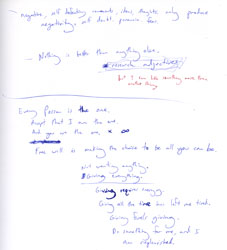 negative, all defending comments, item, thoughts, only produce
negativity, all doubt, paranoia fear.
Nothing is better than anything else.
research adjectives
but I can like something more than
another thing.
Every Person is the one.
Accept that I am the one.
And you are the one, x ∞
Free will is making the choice to be all you can be.
Not wanting anything.
Giving everything.
Giving requires energy.
Giving all the time can leave me tired.
Giving fuels giving.
Do something for me, and I
am replenished.